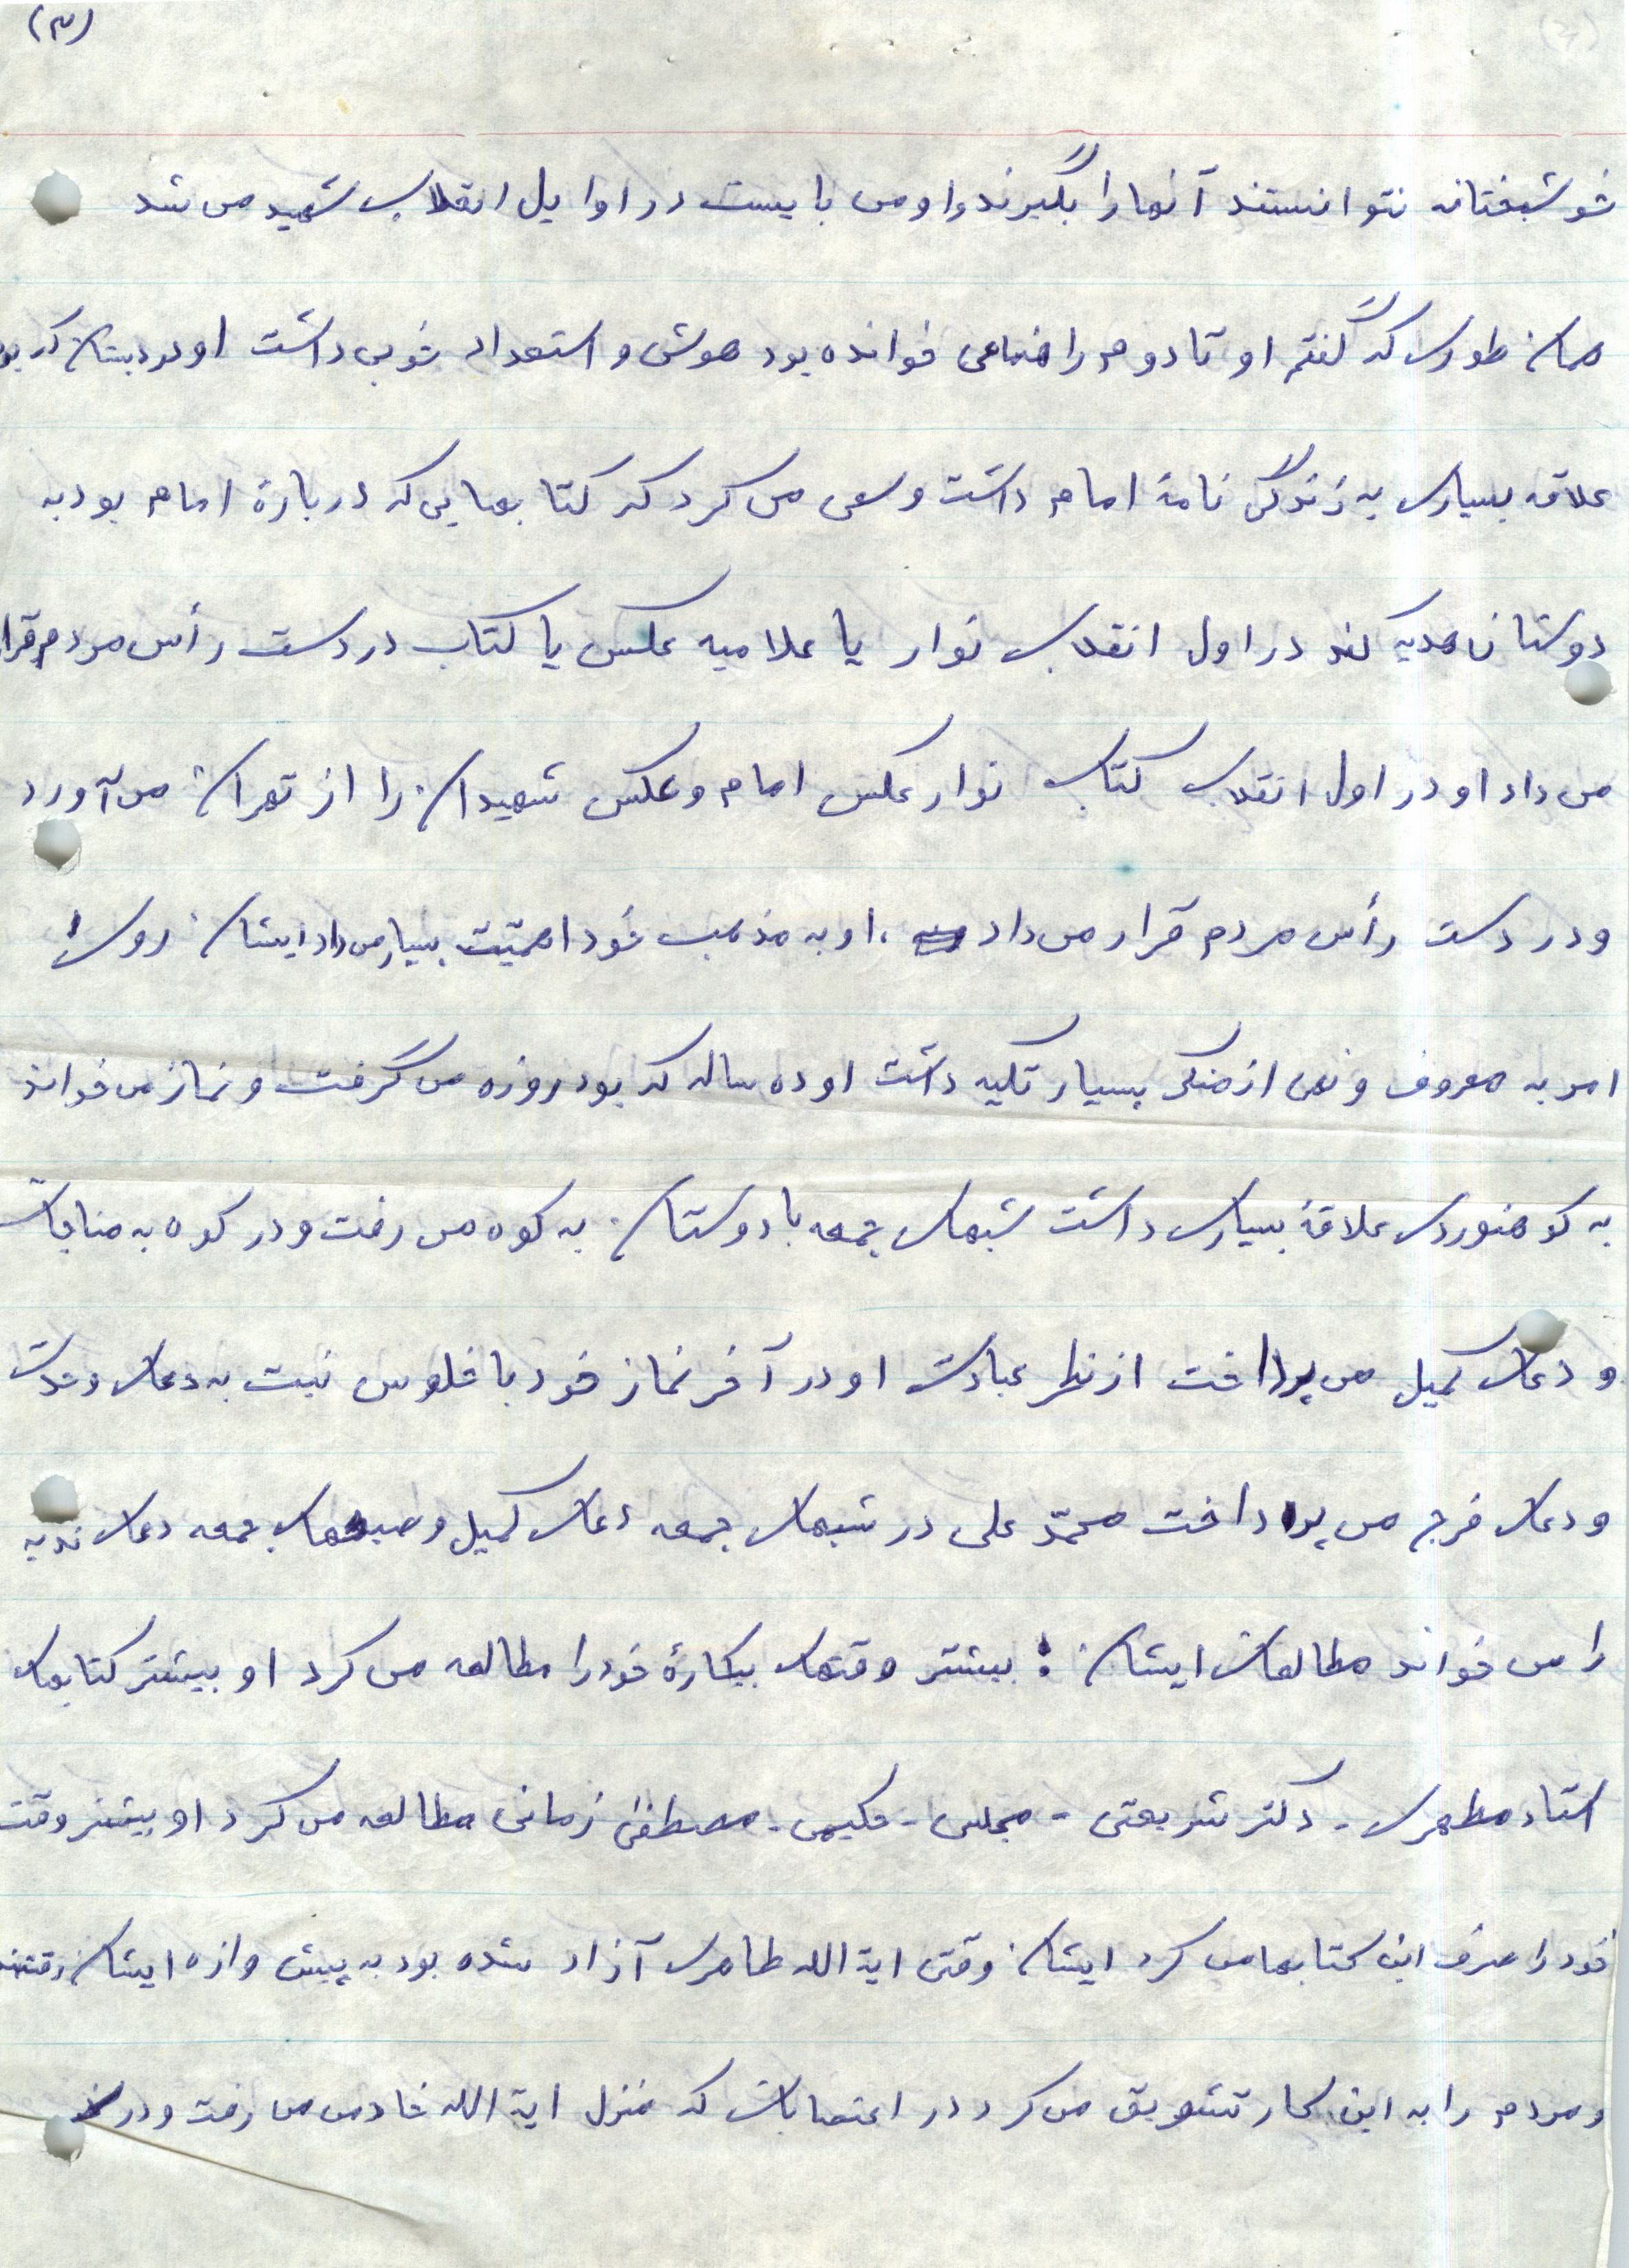 (۳)
خوشبختانه نتوانستند آنها را بگیرند و او می بایست در اوایل انقلاب شهید می شد
همان طوری که گفتم او تا دوم راهنمایی خوانده بود هوش و استعداد خوبی داشت او در دبستان که بود
علاقه بسیاری به زندگی نامهٔ امام داشت و سعی می کرد که کتابهایی که دربارهٔ امام بود به
دوستان هدیه کند در اول انقلاب نوار یا علامیه عکس یا کتاب در دست رأس مردم قرار
می داد او در اول انقلاب کتاب نوار عکس امام و عکس شهیدان را از تهران می آورد
و در دست رأس مردم قرار می داد ، او به مذهب خود اهمیّت بسیار می داد ایشان روی
امر به معروف و نهی از منکر بسیار تکیه داشت او ده ساله که بود روزه می گرفت و نماز می خواند
به کوهنوردی علاقهٔ بسیاری داشت شبهای جمعه با دوستان به کوه می رفت و در کوه به مناجات
و دعای کمیل می پرداخت از نظر عبادت او در آخر نماز خود با خلوص نیت به دعای وحدت
و دعای فرج می پرداخت محمّد علی در شبهای جمعه دعای کمیل و صبحهای جمعه دعای ندبه
را می خواند مطالعات ایشان : بیشتر وقتهای بیکارهٔ خود را مطالعه می کرد او بیشتر کتابهای
استاد مطهری - دکتر شریعتی - مجلسی - حکیمی - مصطفی زمانی مطالعه می کرد او بیشتر وقت
خود را صرف این کتابها می کرد ایشان وقتی ایة الله طاهری آزاد شده بود به پیش وازه ایشان رفتند
و مردم را به این کار تشویق می کرد در اعتصابات که منزل ایة الله خادمی می رفت و در